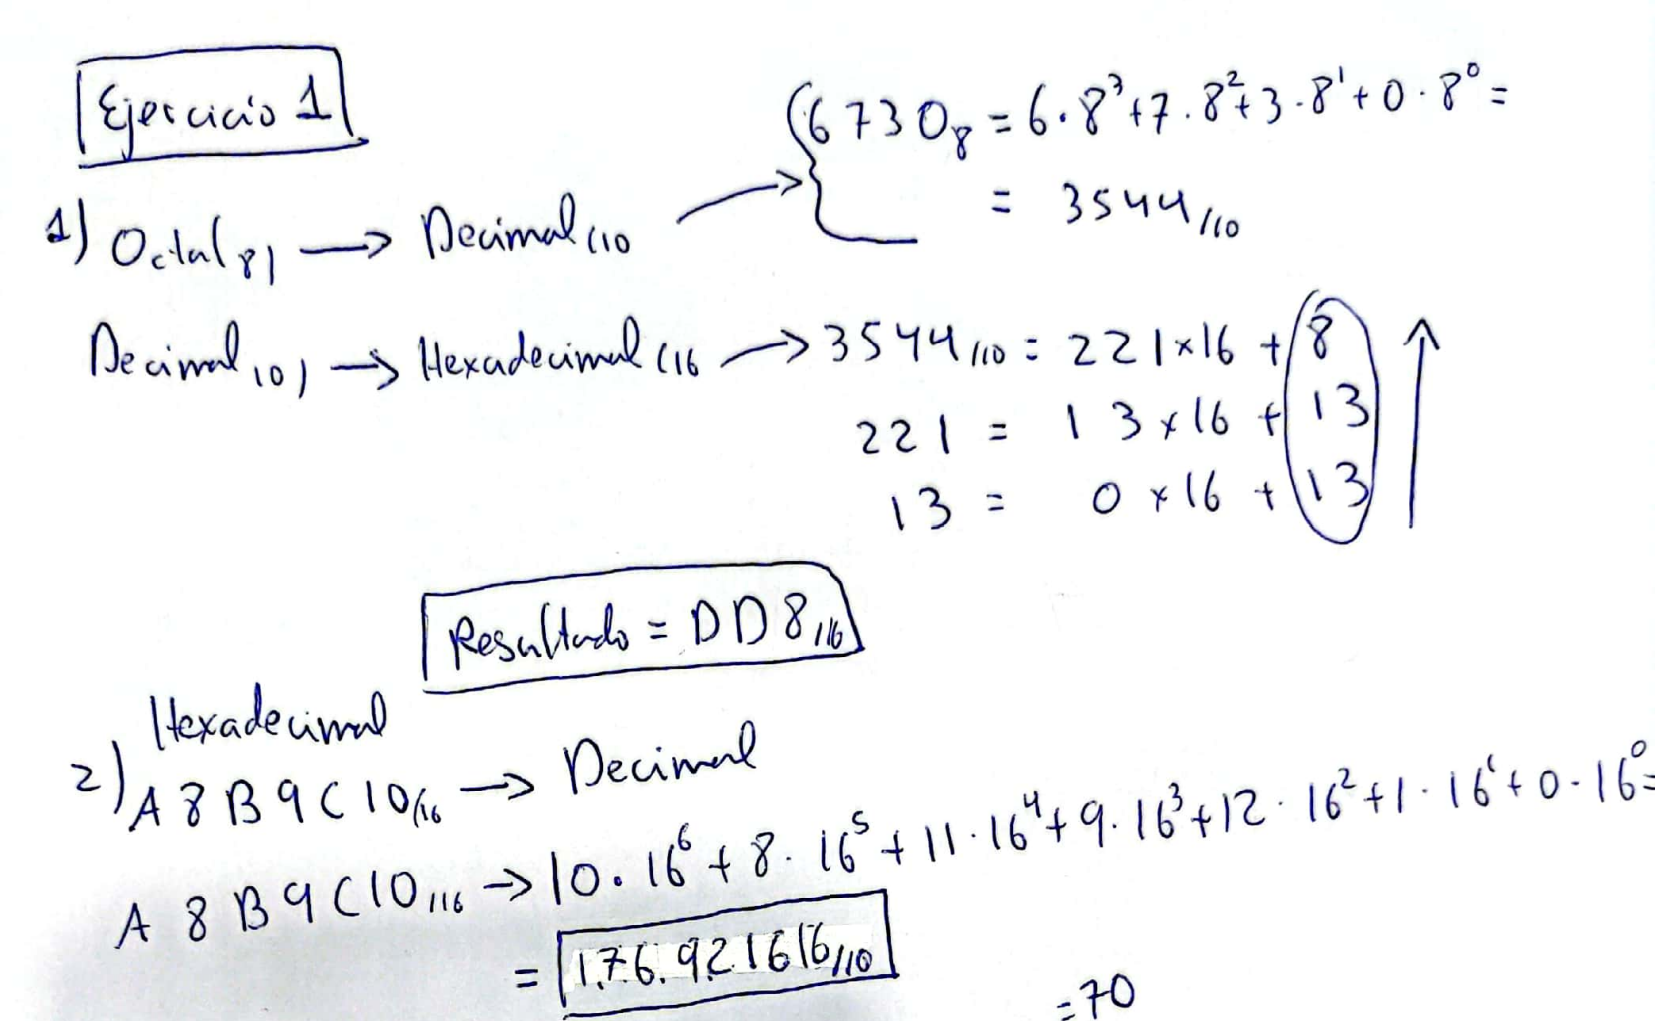 Ejercicio 1
6730₈ = 6·8³+7·8²+3·8¹+0·8⁰=
= 3544₁₁₀
1) Octal 8) → Decimal (10
Decimal 10) → Hexadecimal (16 → 3544₁₁₀ = 221×16 + 8
221 = 13×16 + 13
13 = 0×16 + 13
Resultado = DD8₁₁₆
Hexadecimal
2) A8B9C10₍₁₆ → Decimal
A8B9C10₁₁₆ → 10·16⁶+8·16⁵+11·16⁴+9·16³+12·16²+1·16¹+0·16⁰=
= 1.76.921616₁₁₀
=70